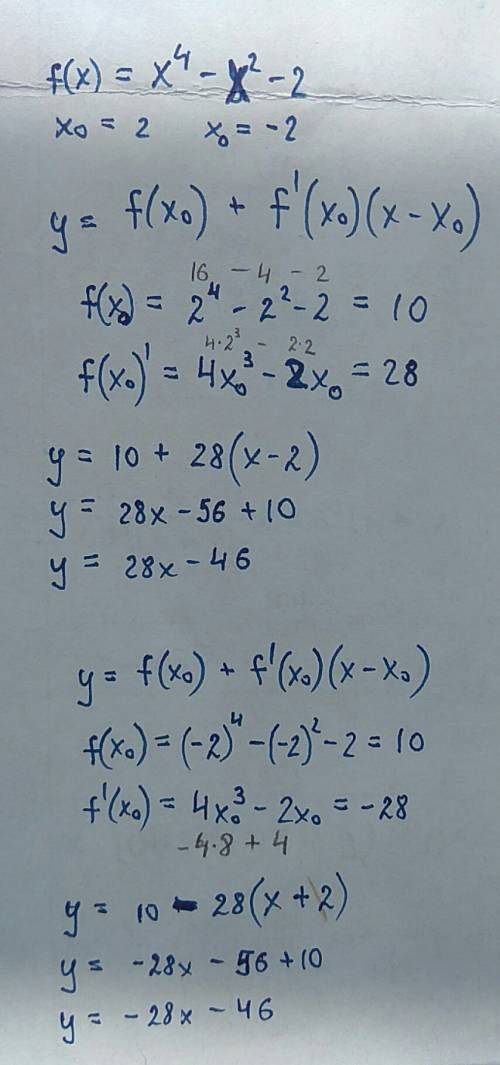 f(x) = x⁴ - x² - 2
x₀ = 2 x₀ = -2
y = f(x₀) + f'(x₀)(x - x₀)
16 - 4 - 2
f(x₀) = 2⁴ - 2² - 2 = 10
4·2³ - 2·2
f(x₀)' = 4x₀³ - 2x₀ = 28
y = 10 + 28(x - 2)
y = 28x - 56 + 10
y = 28x - 46
y = f(x₀) + f'(x₀)(x - x₀)
f(x₀) = (-2)⁴ - (-2)² - 2 = 10
f'(x₀) = 4x₀³ - 2x₀ = -28
-4·8 + 4
y = 10 - 28(x + 2)
y = -28x - 56 + 10
y = -28x - 46